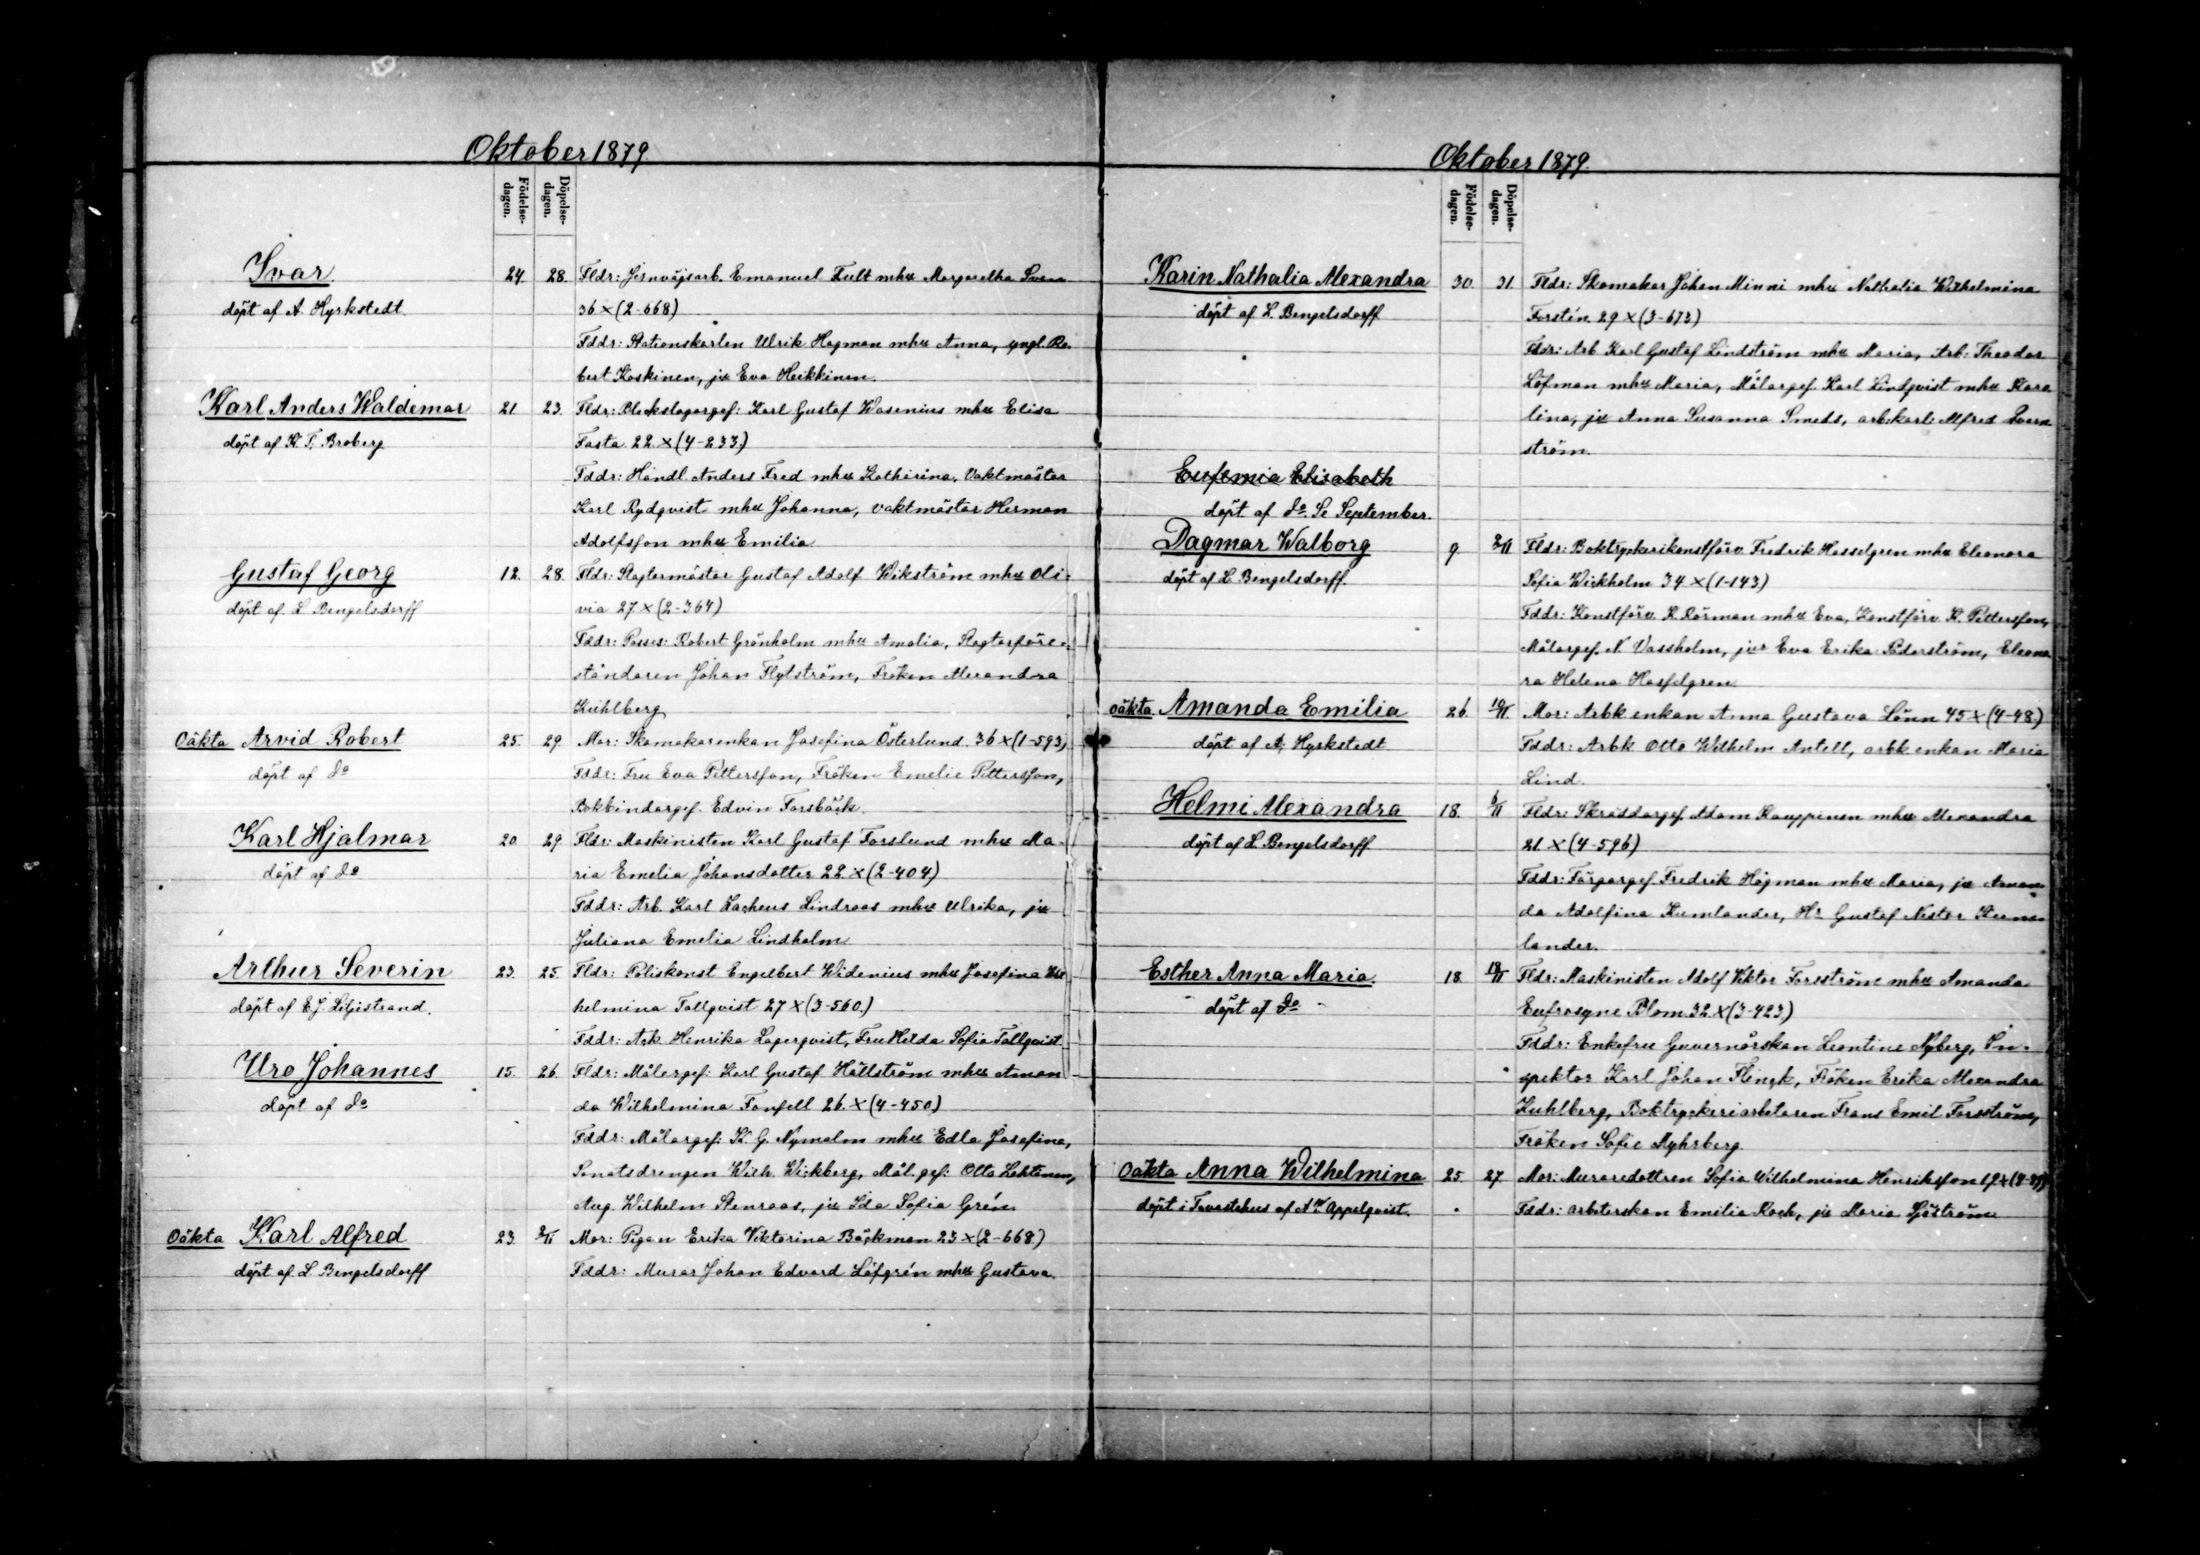 Oktober 1879
Födelse-
dagen.
Döpelse-
dagen.
Ivar
döpt af A. Hyrkstedt
24. 28. Fldr: Jernvägsarb. Emanuel Tult mhu Margaretha
36 × (2-668)
Fddr: Stationskarlen Ulrik Hagman mhu Anna, yngl. Ro-
bert Koskinen, ju Eva Heikkinen.
Karl Anders Waldemar
döpt af K. T. Broberg
21. 23. Fldr: Bleckslagargef: Karl Gustaf Wasenius mhu Elisa
Fasta 22 × (4-233.)
Fddr: Handl. Anders Fred mhu Katharina, Vaktmästar
Karl Rydqvist mhu Johanna, vaktmästar Herman
Adolfsson mhu Emilia
Gustaf Georg
döpt af L. Bengelsdorff
12. 28. Fldr: Slagtermästar Gustaf Adolf Wikström mhu Oli-
via 27 × (2-364)
Fddr: Posses: Robert Grönholm mhu Amalia, Slagtarföre-
ståndaren Johan Flytström, Fröken Alexandra
Kuhlberg
Oäkta Arvid Robert
döpt af do
25. 29. Mor: Skomakarenkan Josefina Österlund 36 × (1-593)
Fddr: Fru Eva Pettersson, Fröken Emelie Pettersson,
Bokbindargef. Edvin Forsbäck.
Karl Hjalmar
döpt af do
20. 29 Fldr: Maskinisten Karl Gustaf Forslund mhu Ma-
ria Emelia Johansdotter 22 × (2-404)
Fddr: Arb. Karl Zacheus Lindroos mhu Ulrika, ju
Juliana Emelia Lindholm
Arthur Severin
döpt af E. J. Liljestrand.
23. 25. Fldr: Poliskonst Engelbert Widenius mhu Josefina Wil
helmina Tallqvist 27 × (3-560.)
Fddr: Henrika Lagerqvist, Fru Hilda Sofia Tallqvist
Uro Johannes
döpt af do
15. 26. Fldr: Målargef: Karl Gustaf Hällström mhu Aman
da Wilhelmina Fonsell 26 × (4-450)
Fddr: Målargef: K. G. Nymalm mhu Edla Josefina,
Senatsdrengen Wilh. Wickberg, Mål. gef: Otto Lehtinen,
Aug. Wilhelm Stenroos, ju Ida Sofia Grén
Oäkta Karl Alfred
döpt af L. Bengelsdorff
23. 2/11 Mor: Pigan Erika Viktorina Bäckman 23 × (2-668)
Fddr: Murar Johan Edvard Löfgrén mhu Gustava.
Oktober 1879.
Födelse-
dagen.
Döpelse-
dagen.
Karin Nathalia Alexandra
döpt af L. Bengelsdorff
30. 31. Fldr: Skomakar Johan Minni mhu Nathalia Wilhelmina
Forstén 29 × (3-673)
Fddr: Arb. Karl Gustaf Lindström mhu Maria, Arb: Theodor
Löfman mhu Maria, Målargef. Karl Lindqvist mhu Karo
lina, ju Anna Susanna Smeds, arb:karl: Alfred
ström.
Eufemia Elisabeth
döpt af do. Se September.
Dagmar Walborg
döpt af L. Bengelsdorff.
9. 2/11 Fldr: Boktryckerikonstförv. Fredrik Hasselgren mhu Eleonora
Sofia Wickholm 34 × (1-143)
Fddr: Konstförv. K. Dörman mhu Eva, Konstförv. K. Pettersson,
Målargef. N. Vassholm, jur Eva Erika Söderström, Eleono
ra Helena Hasselgren.
Oäkta Amanda Emilia
döpt af A. Hyrkstedt
26. 10/11. Mor: Arbk enkan Anna Gustava Lönn 45 × (4-48.)
Fddr: Arbk Otto Wilhelm Antell, arbk enkan Maria
Lind.
Helmi Alexandra
döpt af L. Bengelsdorff
18. 6/11 Fldr: Skräddargef. Adam Kauppinen mhu Alexandra
21 × (4-596)
Fddr: Färgargef. Fredrik Högman mhu Maria, ju Aman-
da Adolfina Kumlander, Hr Gustaf Nestor Kum-
lander.
Esther Anna Maria.
döpt af do
18. 18/11 Fldr: Maskinisten Adolf Viktor Forsström mhu Amanda
Eufrosyne Blom 32 × (3-423)
Fddr: Enkefru Guvernörskan Leontine Nyberg, In-
spektor Karl Johan Flinck, Fröken Erika Alexandra
Kuhlberg, Boktryckeriarbetaren Frans Emil Forsström,
Fröken Sofie Myhrberg.
Oäkta Anna Wilhelmina
döpt i Tavastehus af Appelqvist.
25. 27. Mor: Muraredottren Sofia Wilhelmina Henriksson
Fddr: arbeterskan Emilia Koch, ju Maria Sjöström